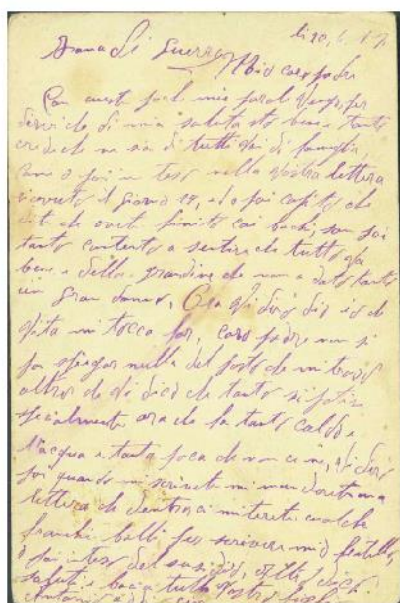 li 20, 6, 17
Zona di Guerra Mio caro padre
Con queste poch mie parole vengo per
dirvi che di mia salute sto bene e tanto
credo che ne sia di tutti voi di famiglia,
come o poi in teso nella vostra lettera
ricevuto il giorno 19, ed o poi capito che
che avete finito coi bachi, son poi
tanto contento a sentire che tutto va
bene e della grandine che non a dato tanto
un gran danno, Ora vi dirò
vita mi tocca far, caro padre non si
po spiegar nulla del posto che mi trovo
altro che vi dico che tanto si
specialmente ora che fa tanto caldo e
l'acqua e tanta poca che non ci ne, vi dirò
poi quando mi scrivete mi mandarete una
lettera che dentro ci meterete qualche
franchi bolli per scrivere mio fratello,
o poi inteso del susidio,
saluti e baci a tutti vostro
Antonio